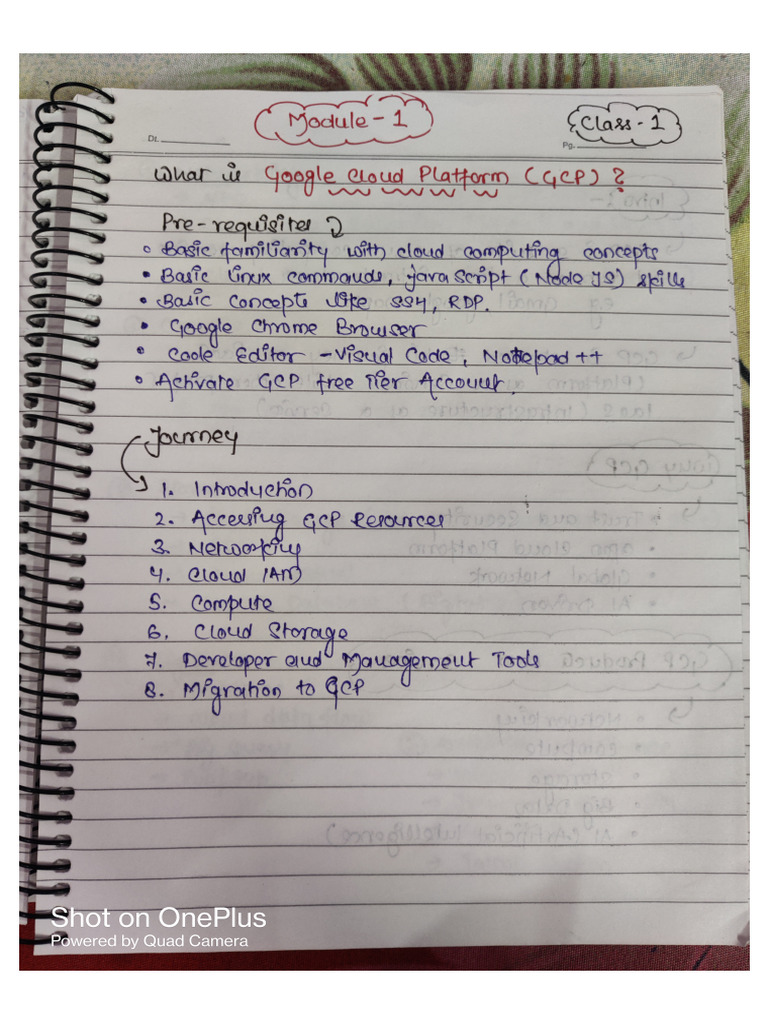 Module - 1
Class - 1
Dt.
Pg.
What is Google Cloud Platform (GCP) ?
Pre-requisites
• Basic familiarity with cloud computing concepts
• Basic Linux commands, Java Script (Node JS) skills
• Basic Concepts like SSH, RDP.
• Google Chrome Browser
• Code Editor - Visual Code, Notepad ++
• Activate GCP free Tier Account.
Journey
1. Introduction
2. Accessing GCP Resources
3. Networking
4. Cloud IAM
5. Compute
6. Cloud Storage
7. Developer and Management Tools
8. Migration to GCP
Shot on OnePlus
Powered by Quad Camera